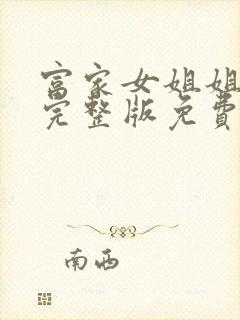 富家女姐姐
完整版免費
南西